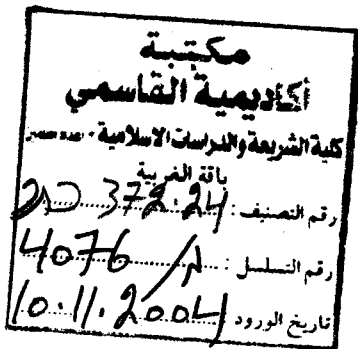 مكتبة
أكاديمية القاسمي
كلية الشريعة والدراسات الاسلامية
باقة الغربية
رقم التصنيف: 372.24
رقم التسلسل: 4076
تاريخ الورود 10.11.2004